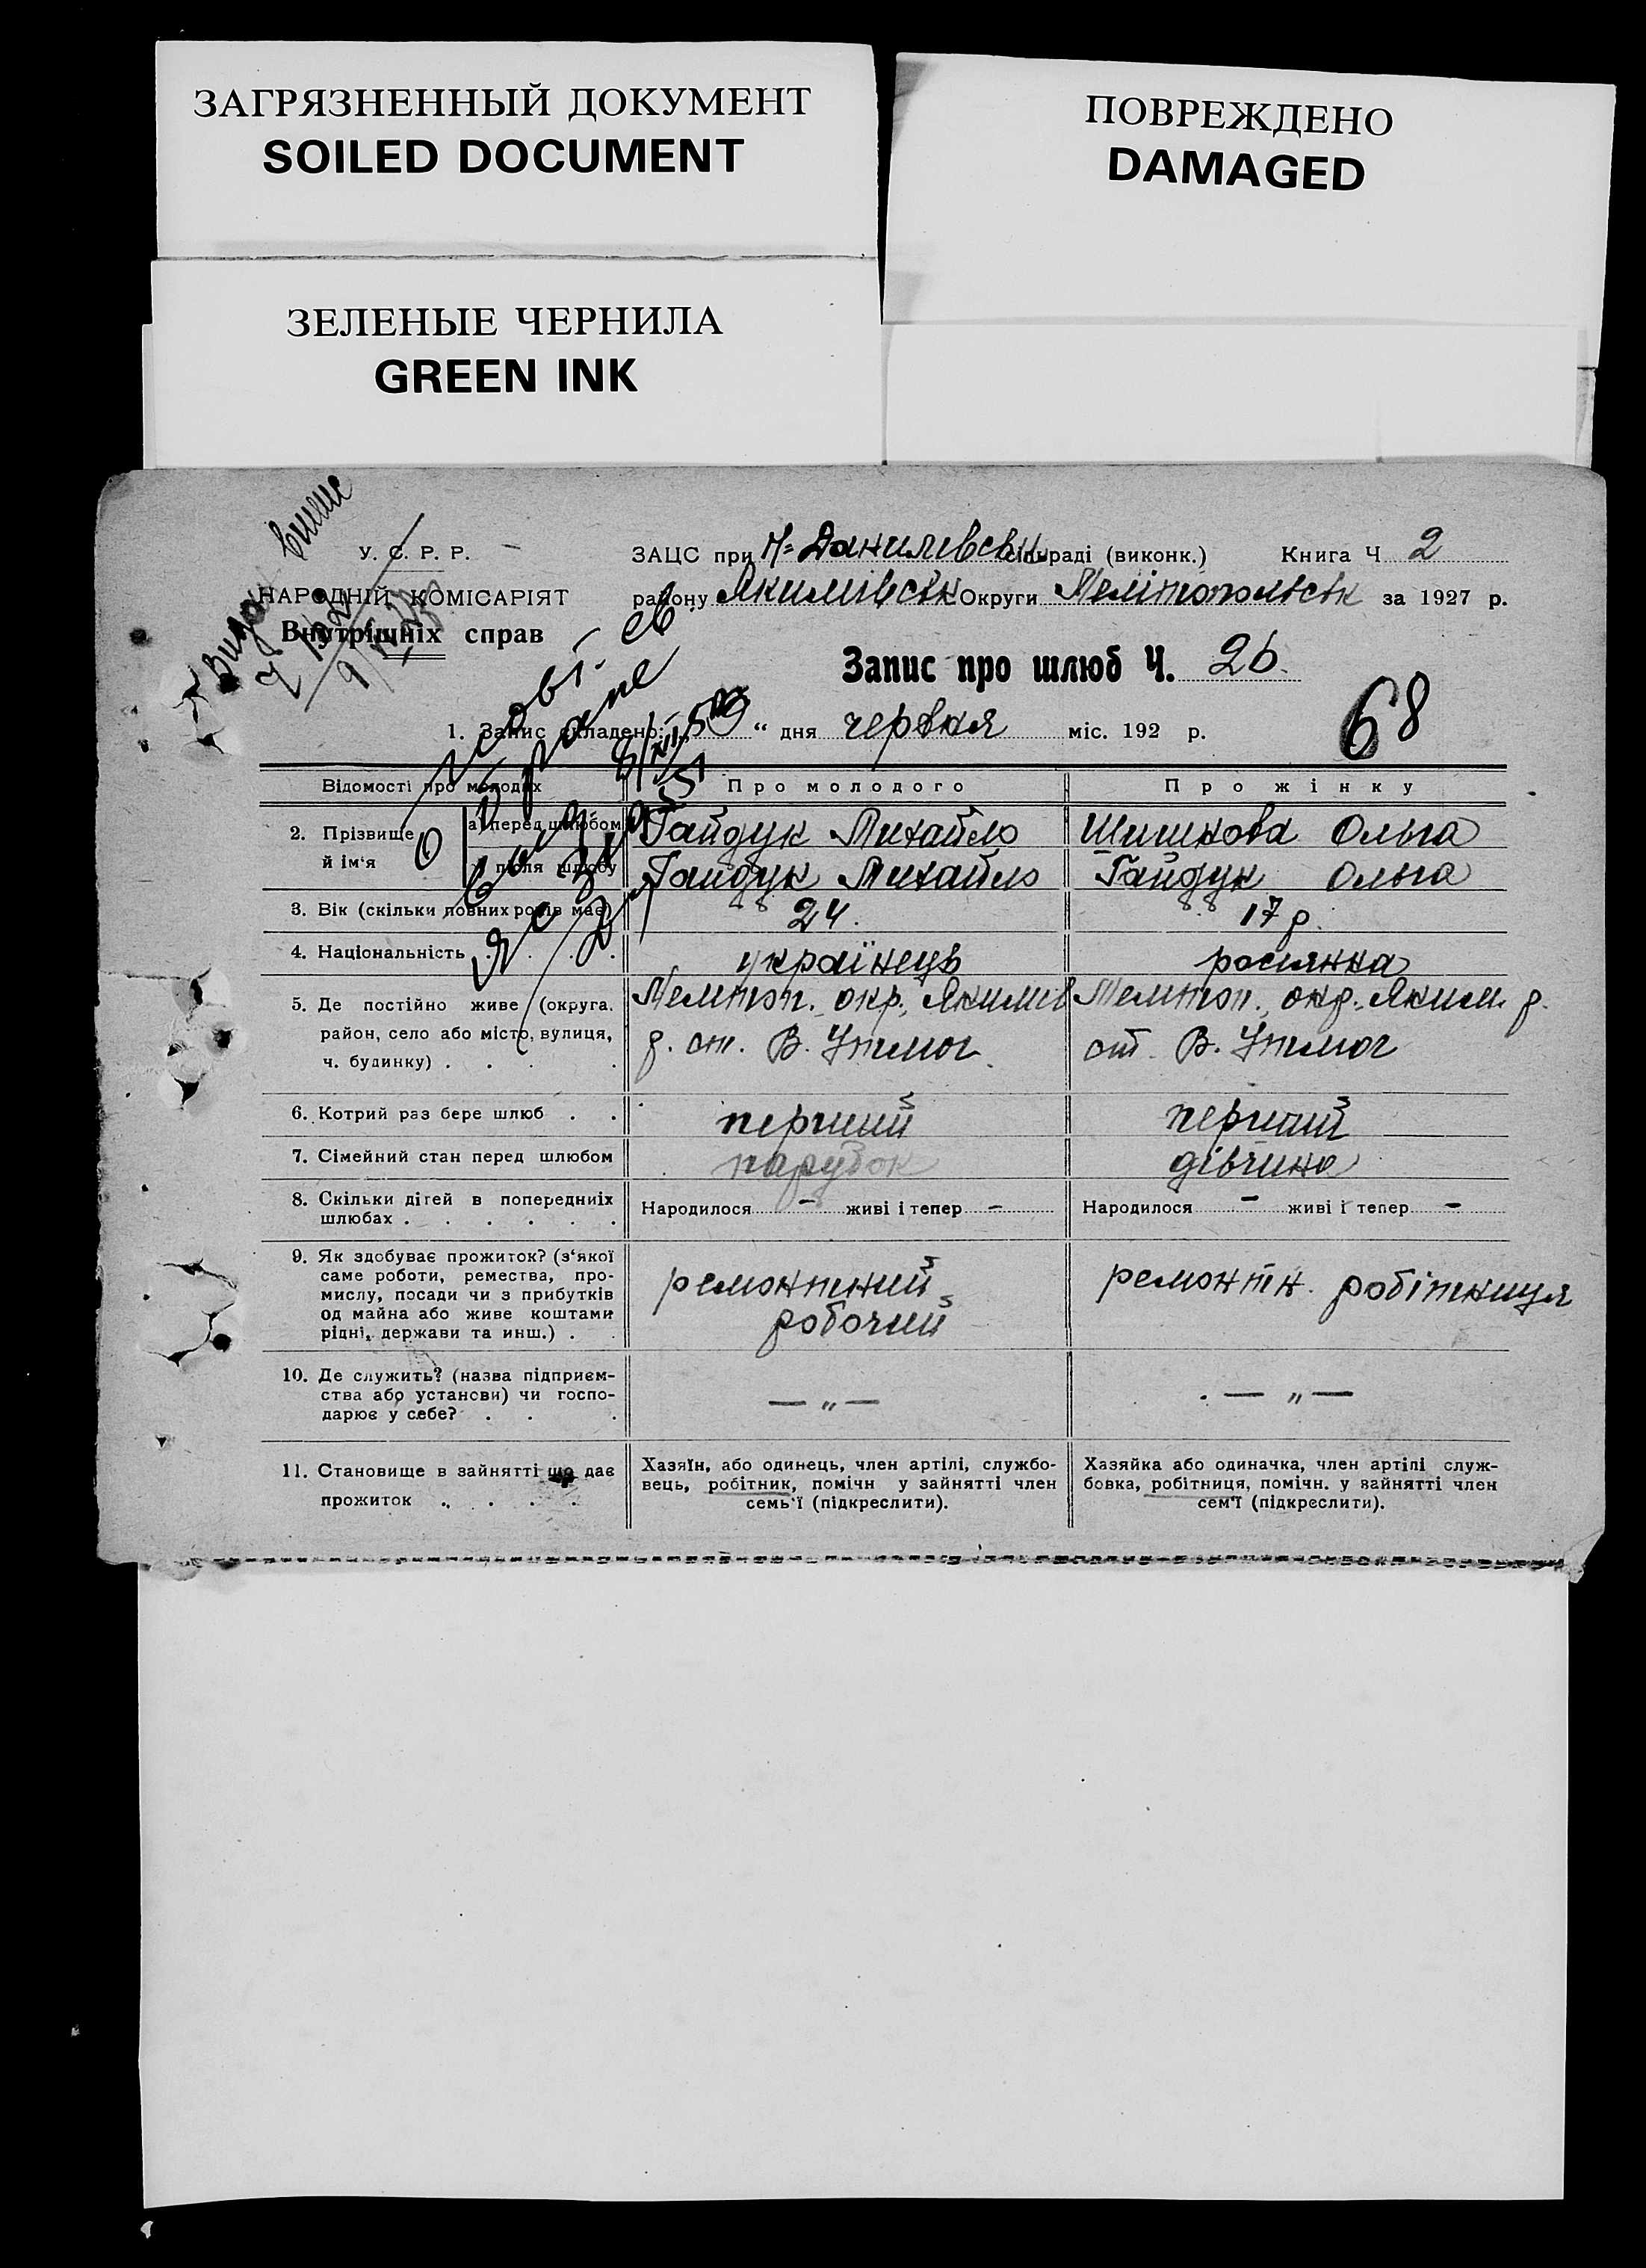 ЗАГРЯЗНЕННЫЙ ДОКУМЕНТ
SOILED DOCUMENT
ПОВРЕЖДЕНО
DAMAGED
ЗЕЛЕНЫЕ ЧЕРНИЛА
GREEN INK
У. С. Р. Р.
НАРОДНІЙ КОМІСАРІЯТ
Внутрішніх справ
ЗАЦС при Н-Данилевськ сільраді (виконк.) Книга Ч 2
району Якимівськ Округи Мелітопольськ за 1927 р.
Запис про шлюб Ч. 26.
68
1. Запис складено: “ дня червня міс. 192 р.
Відомості про молодих
Про молодого
Про жінку
2. Прізвище й ім‘я
а) перед шлюбом Гайдук Михайло Шишкова Ольга
після шлюбу Гайдук Михайло Гайдук Ольга
3. Вік (скільки повних років має) 24. 17 р.
4. Національність українець росіянка
5. Де постійно живе (округа, район, село або місто, вулиця, ч. будинку)
Меліт оп. окр., Якимів р. ст. В. Утлюг.
Мелітоп. окр. Яким. р. ст. В. Утлюг
6. Котрий раз бере шлюб перший перший
7. Сімейний стан перед шлюбом парубок дівчина
8. Скільки дітей в попередніх шлюбах
Народилося – живі і тепер –
Народилося – живі і тепер –
9. Як здобуває прожиток? (з‘якої
саме роботи, ремества, про-
мислу, посади чи з прибутків
од майна або живе коштами
рідні, держави та инш.)
ремонтний робочий
ремонтн. робітниця
10. Де служить? (назва підприєм-
ства або установи) чи госпо-
дарює у себе?
— „ —
— „ —
11. Становище в зайнятті що дає
прожиток
Хазяїн, або одинець, член артілі, службо-
вець, робітник, помічн у зайнятті член
семь‘ї (підкреслити).
Хазяйка або одиначка, член артілі служ-
бовка, робітниця, помічн. у зайнятті член
сем‘ї (підкреслити).